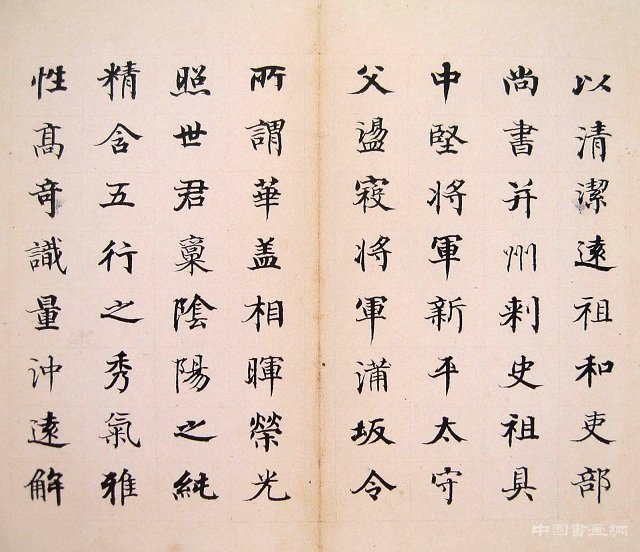 以清潔遠祖和吏部
尚書并州刺史祖具
中堅将軍新平太守
父盪寇将軍蒲坂令
所謂華盖相暉榮光
照世君稟陰陽之純
精含五行之秀氣雅
性髙竒識量沖遠解
中国書画網